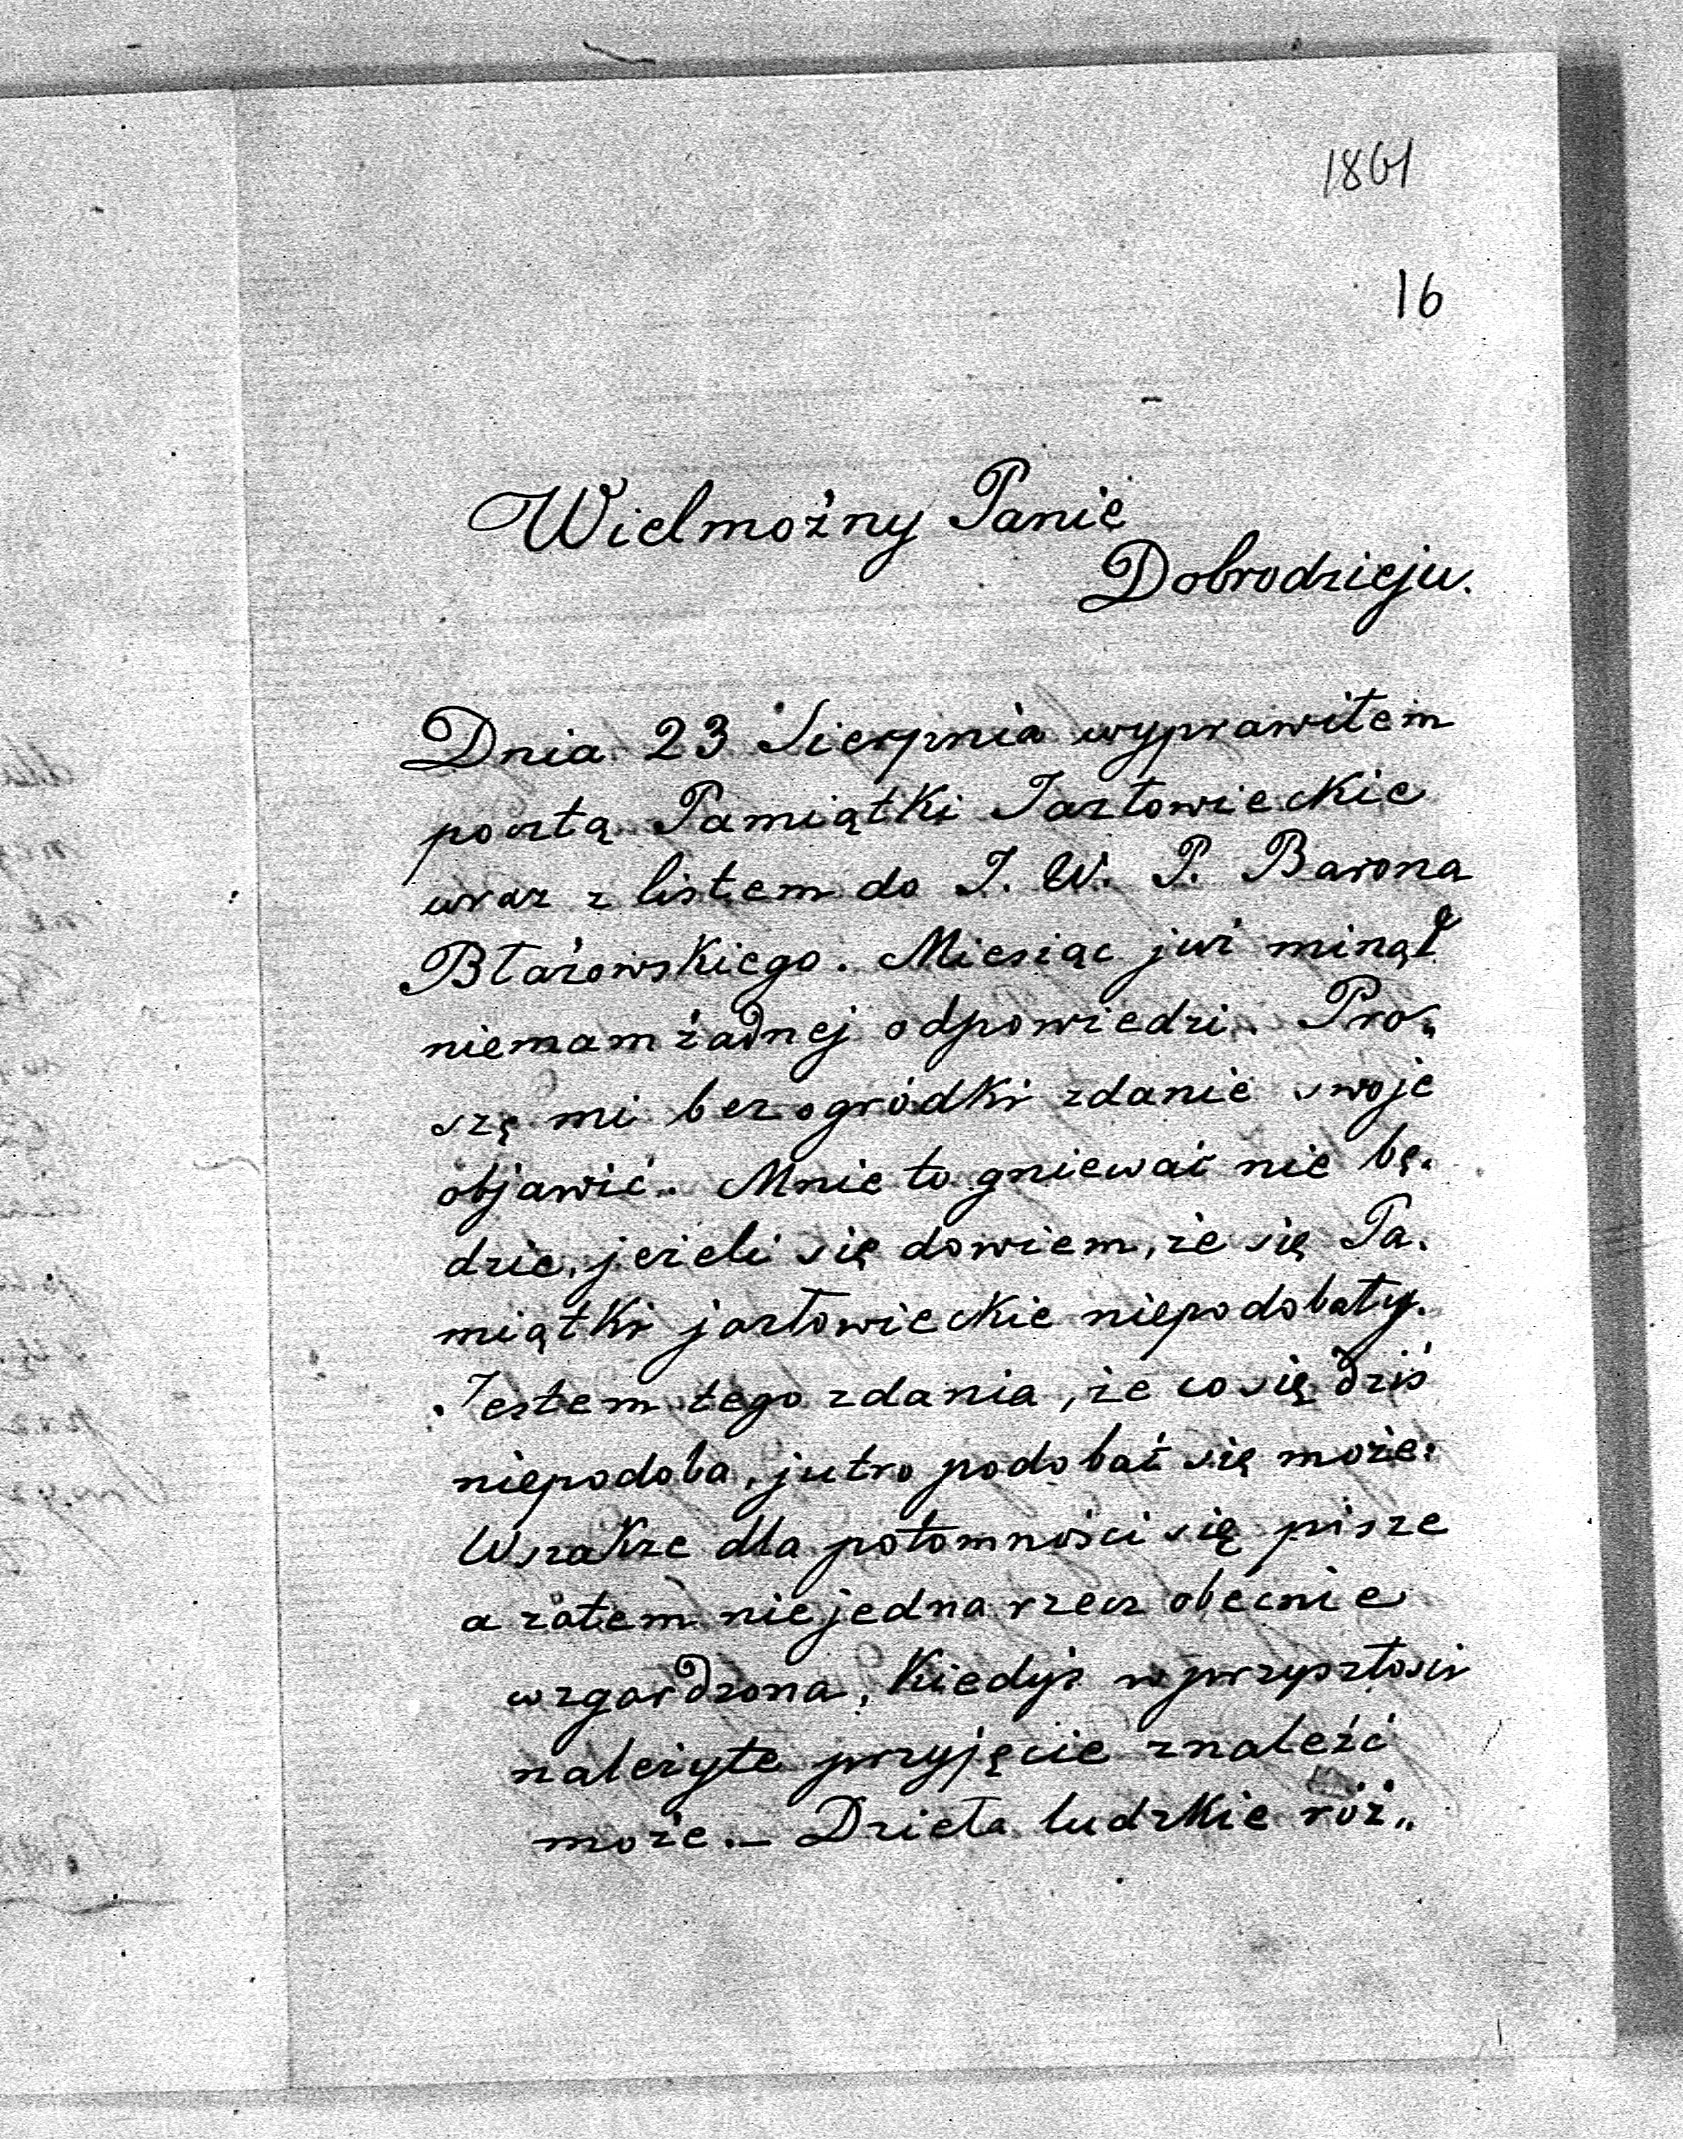 1861
16
Wielmożny Panie
Dobrodzieju.
Dnia 23 Sierpnia wyprawiłem
pocztą Pamiątki Jazłowieckie
wraz z listem do J. W. P. Barona
Błażowskiego. Miesiąc już minął
niemam żadnej odpowiedzi. Pro„
szę mi bez ogródki zdanie swoje
objawić. Mnie to gniewać nie bę.
dzie, jeżeli się dowiem, że się Pa.
miątki jazłowieckie niepodobały.
Jestem tego zdania, że co się dziś
niepodoba, jutro podobać się może:
Wszakże dla potomności się pisze
a zatem niejedna rzecz obecnie
wzgardzona, kiedyś w przyszłości
należyte przyjęcie znaleźć
może. – Dzieła ludzkie róż„